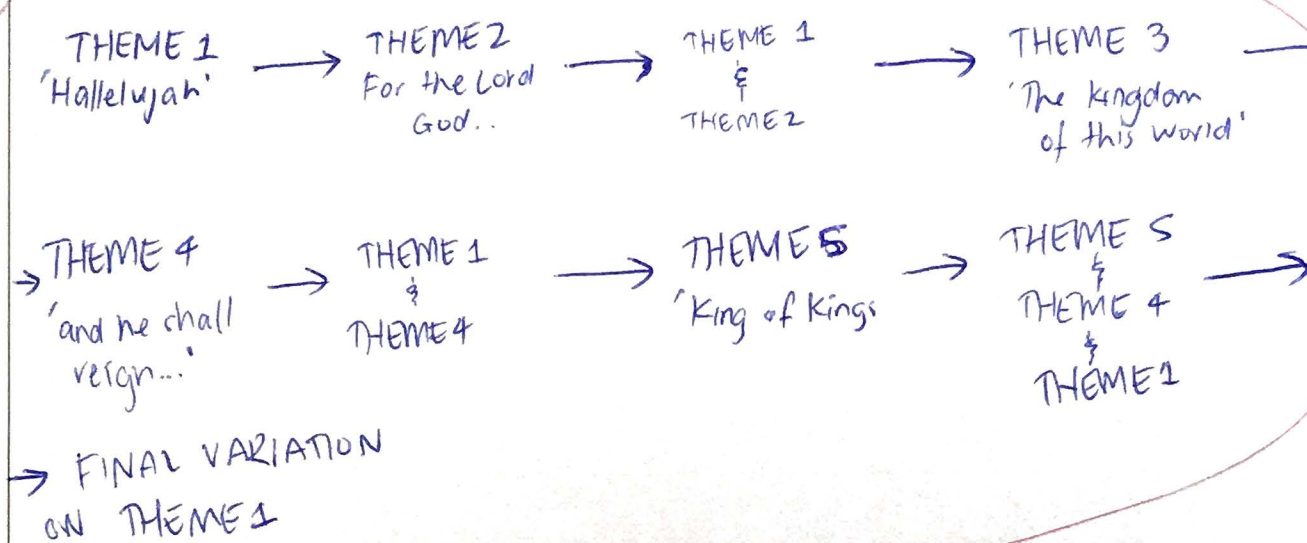 THEME 1
'Hallelujah'
THEME 2
For the Lord
God..
THEME 1
&
THEME 2
THEME 3
'The kingdom
of this world'
THEME 4
'and he shall
reign...'
THEME 1
&
THEME 4
THEME 5
'King of Kings
THEME 5
&
THEME 4
&
THEME 1
FINAL VARIATION
ON THEME 1